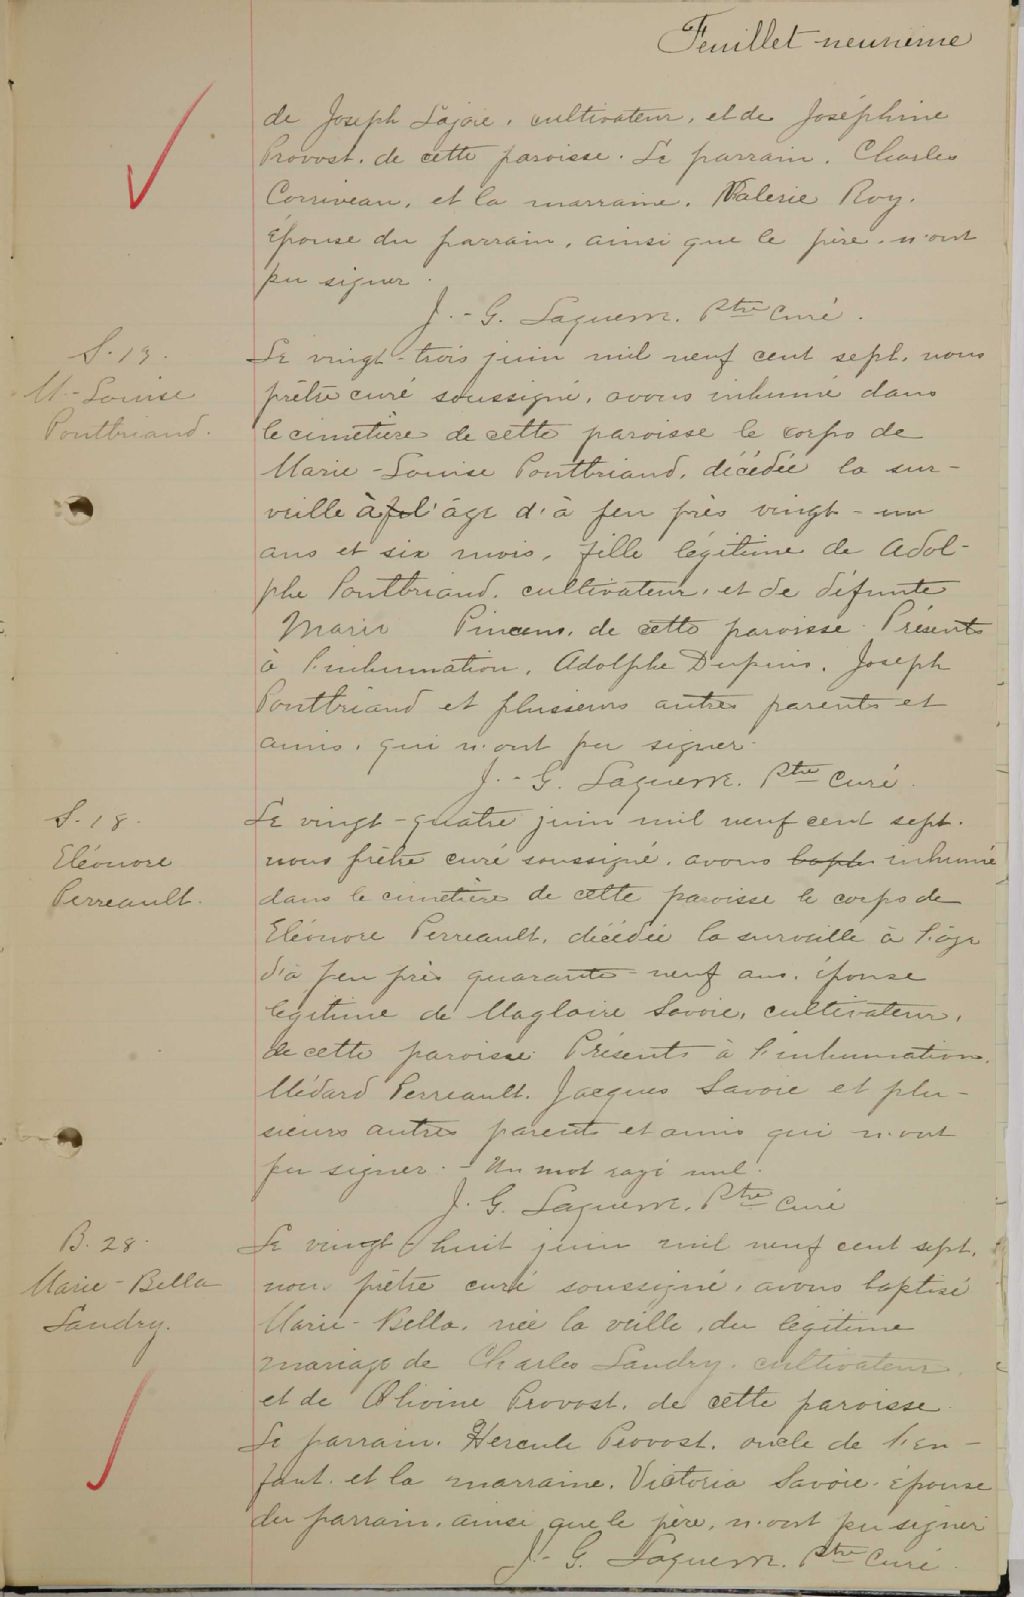 Feuillet neuvième
de Joseph Lajoie, cultivateur, et de Joséphine
Provost, de cette paroisse. Le parrain, Charles
Corriveau, et la marraine, Valerie Roy,
épouse du parrain, ainsi que le père, n'ont
pu signer.
J.-G. Laguerre, Ptre Curé.
S. 17.
M-Louise
Pontbriand.
Le vingt-trois juin mil neuf cent sept, nous
prêtre curé soussigné, avons inhumé dans
le cimetière de cette paroisse le corps de
Marie-Louise Pontbriand, décédée la sur-
veille à l'âge d'à peu près vingt-un
ans et six mois, fille légitime de Adol-
phe Pontbriand, cultivateur, et de défunte
Marie de cette paroisse. Présents
à l'inhumation, Adolphe Dupuis, Joseph
Pontbriand et plusieurs autres parents et
amis, qui n'ont pu signer.
J.-G. Laguerre, Ptre Curé.
S. 18.
Eléonore
Perreault.
Le vingt-quatre juin mil neuf cent sept,
nous prêtre curé soussigné, avons bapt inhumé
dans le cimetière de cette paroisse le corps de
Eléonore Perreault, décédée la surveille à l'âge
d'à peu près quarante-neuf ans, épouse
légitime de Magloire Savoie, cultivateur,
de cette paroisse. Présents à l'inhumation,
Médard Perreault, Jacques Savoie et plu-
sieurs autres parents et amis qui n'ont
pu signer. - Un mot rayé nul.
J. G. Laguerre, Ptre Curé
B. 28.
Marie-Bella
Landry.
Le vingt-huit juin mil neuf cent sept,
nous prêtre curé soussigné, avons baptisé
Marie-Bella, née la veille, du légitime
mariage de Charles Landry, cultivateur,
et de Olivine Provost, de cette paroisse.
Le parrain, Hercule Provost, oncle de l'en-
fant, et la marraine, Victoria Savoie, épouse
du parrain, ainsi que le père, n'ont pu signer
J.-G. Laguerre, Ptre Curé.